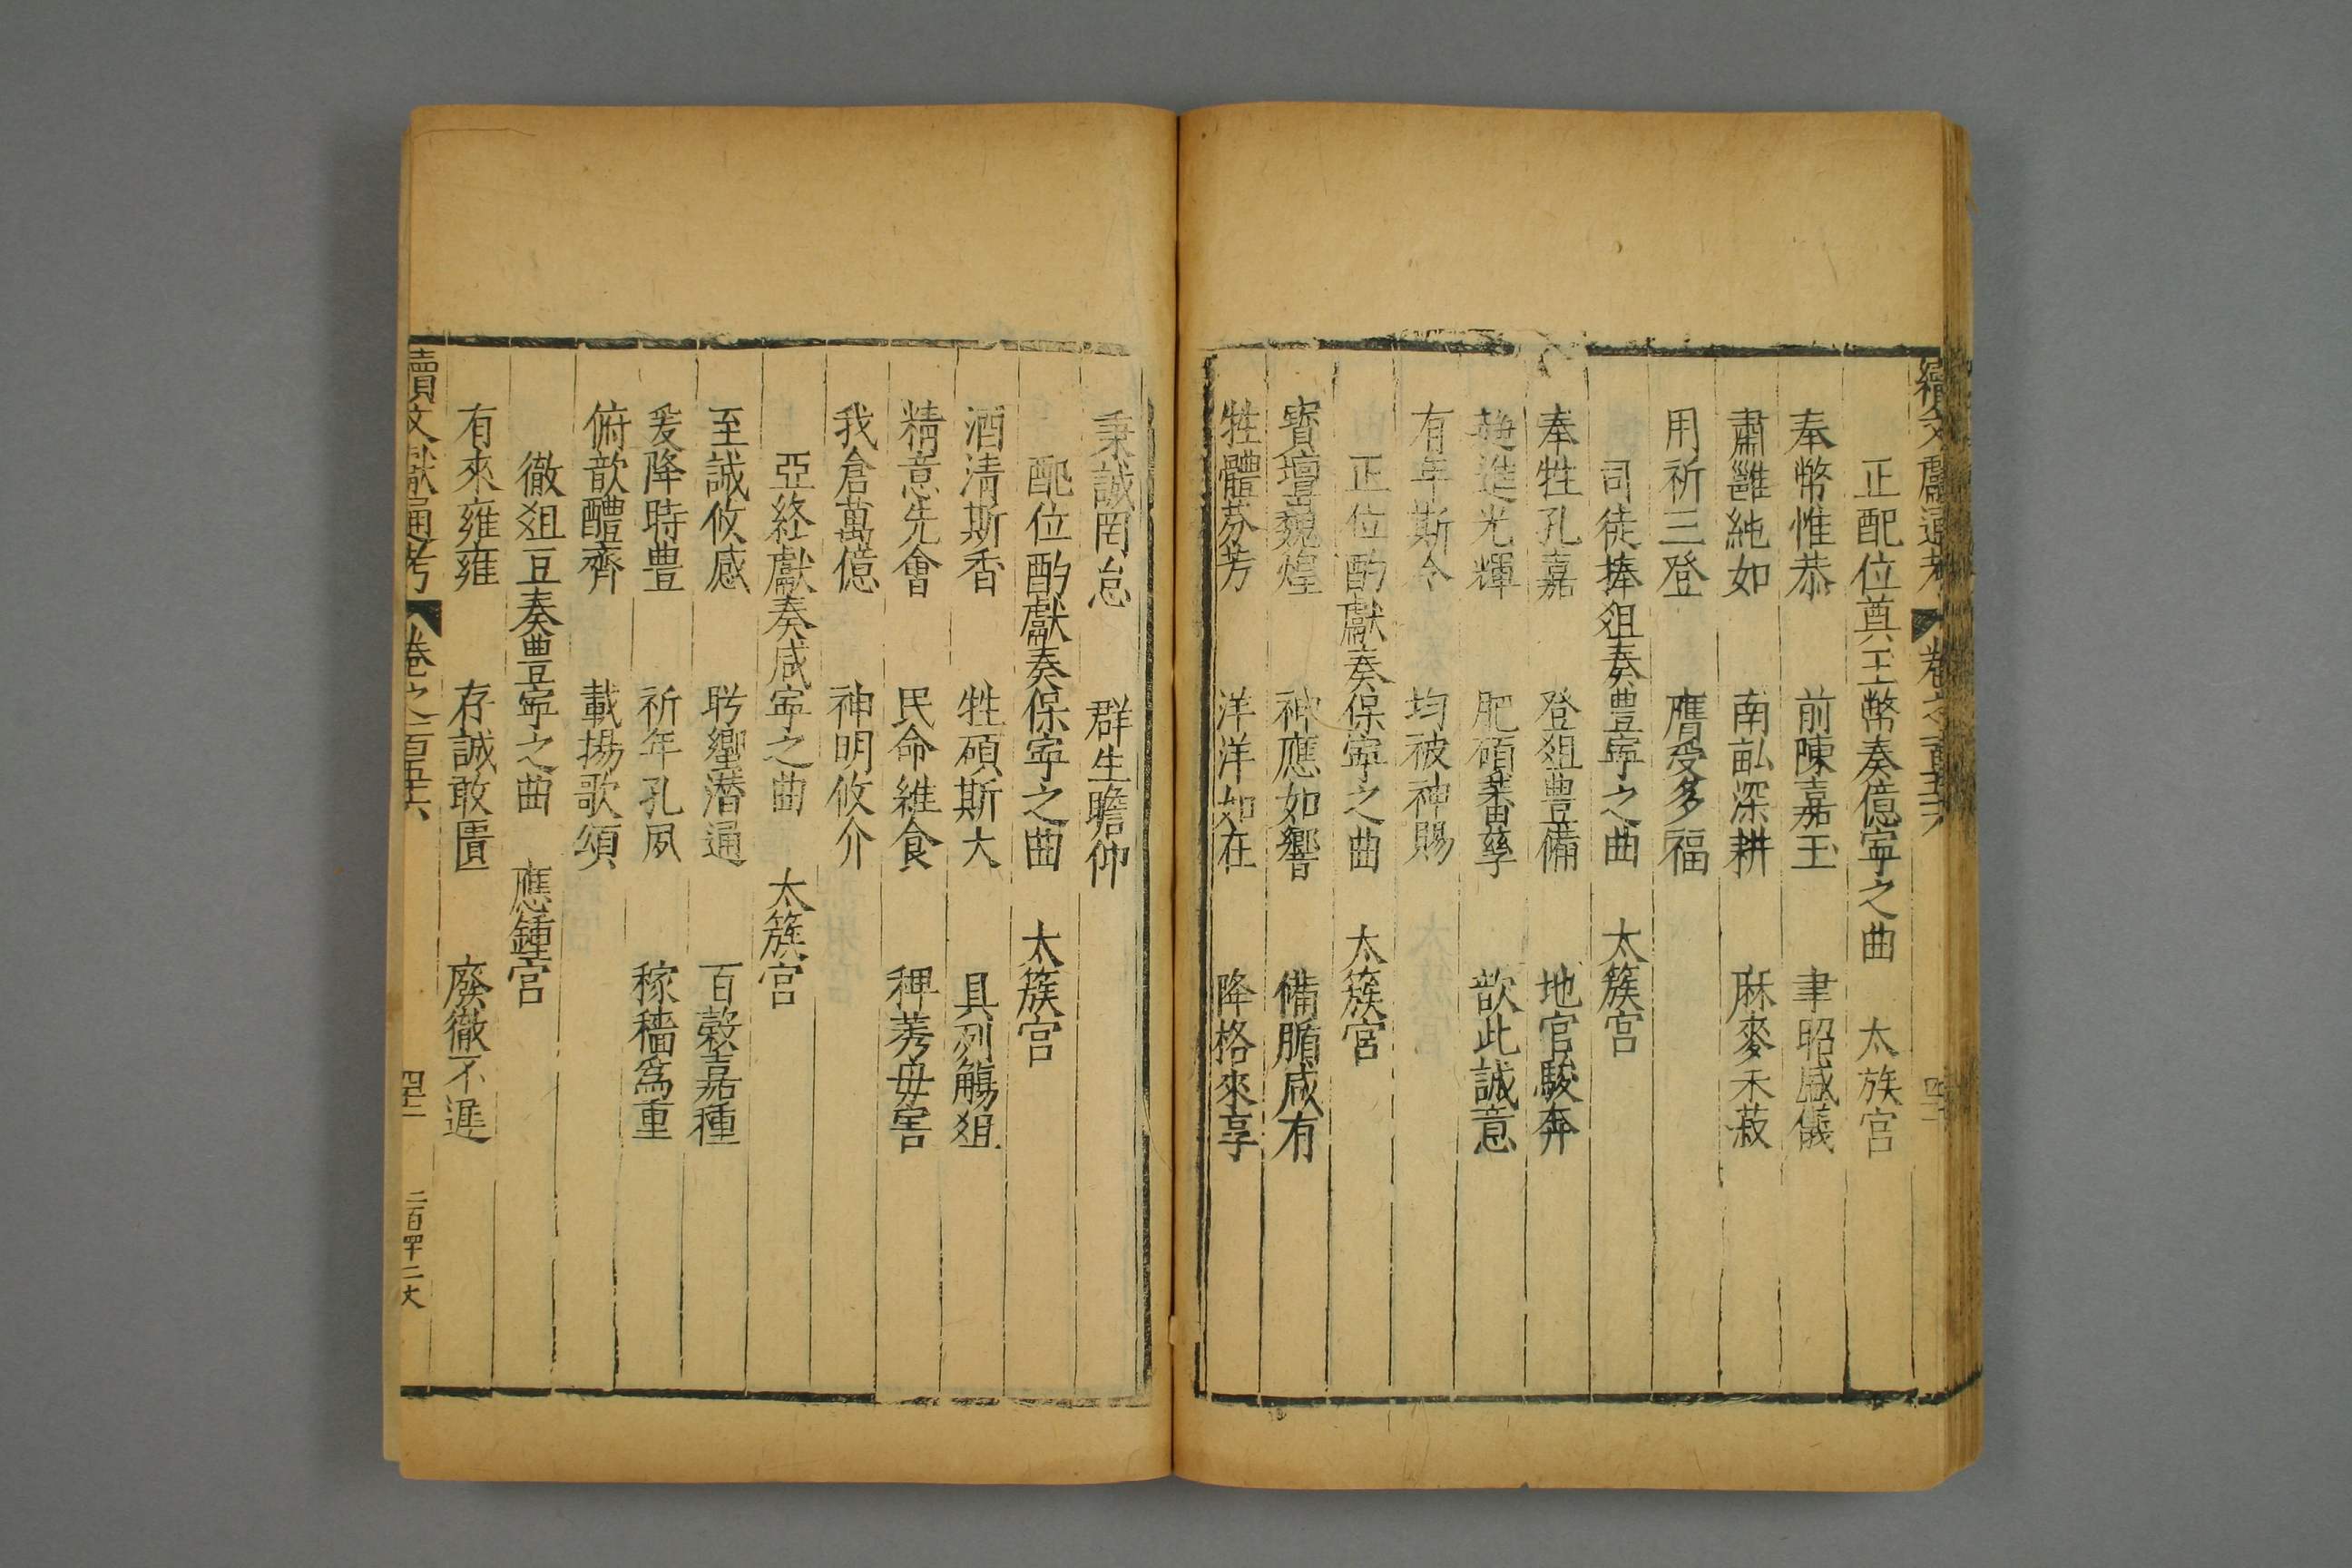 續文獻通考　卷之一百五十六
正配位奠玉幣奏億寧之曲　太族宮
奉幣惟恭　前陳嘉玉　聿昭盛儀
肅雝純如　南畝深耕　麻麥禾菽
用祈三登　膺受多福
司徒捧俎奏豊寧之曲　太簇宮
奉牲孔嘉　登俎豊備　地官駿奔
趨進光輝　肥碩蕃孳　歆此誠意
有年斯今　均被神賜
正位酌獻奏保寧之曲　太簇宮
寳壇巍煌　神應如響　備腯咸有
牲體芬芳　洋洋如在　降格來享
秉誠罔怠　群生瞻仰
配位酌獻奏保寧之曲　太簇宮
酒清斯香　牲碩斯大　具列觴俎
精意先會　民命維食　稗莠毋害
我倉萬億　神明攸介
亞終獻奏咸寧之曲　太簇宮
至誠攸感　肸蠁潜通　百穀嘉種
爰降時豊　祈年孔夙　稼穡爲重
俯歆醴齊　載揚歌頌
徹俎豆奏豊寧之曲　應鍾宮
有來雍雍　存誠敢匱　廢徹不遲
續文獻通考　卷之一百五十六　四十二　二百四十二丈